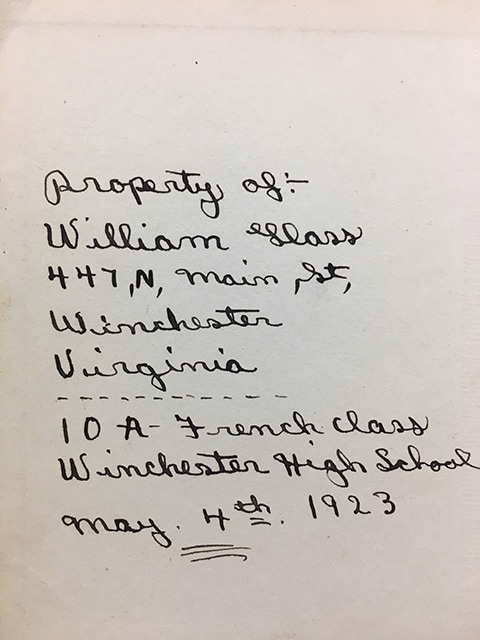 Property of:-
William Glass
447, N, Main, St,
Winchester
Virginia
-----------
10 A- French class
Winchester High School
May. 4th. 1923